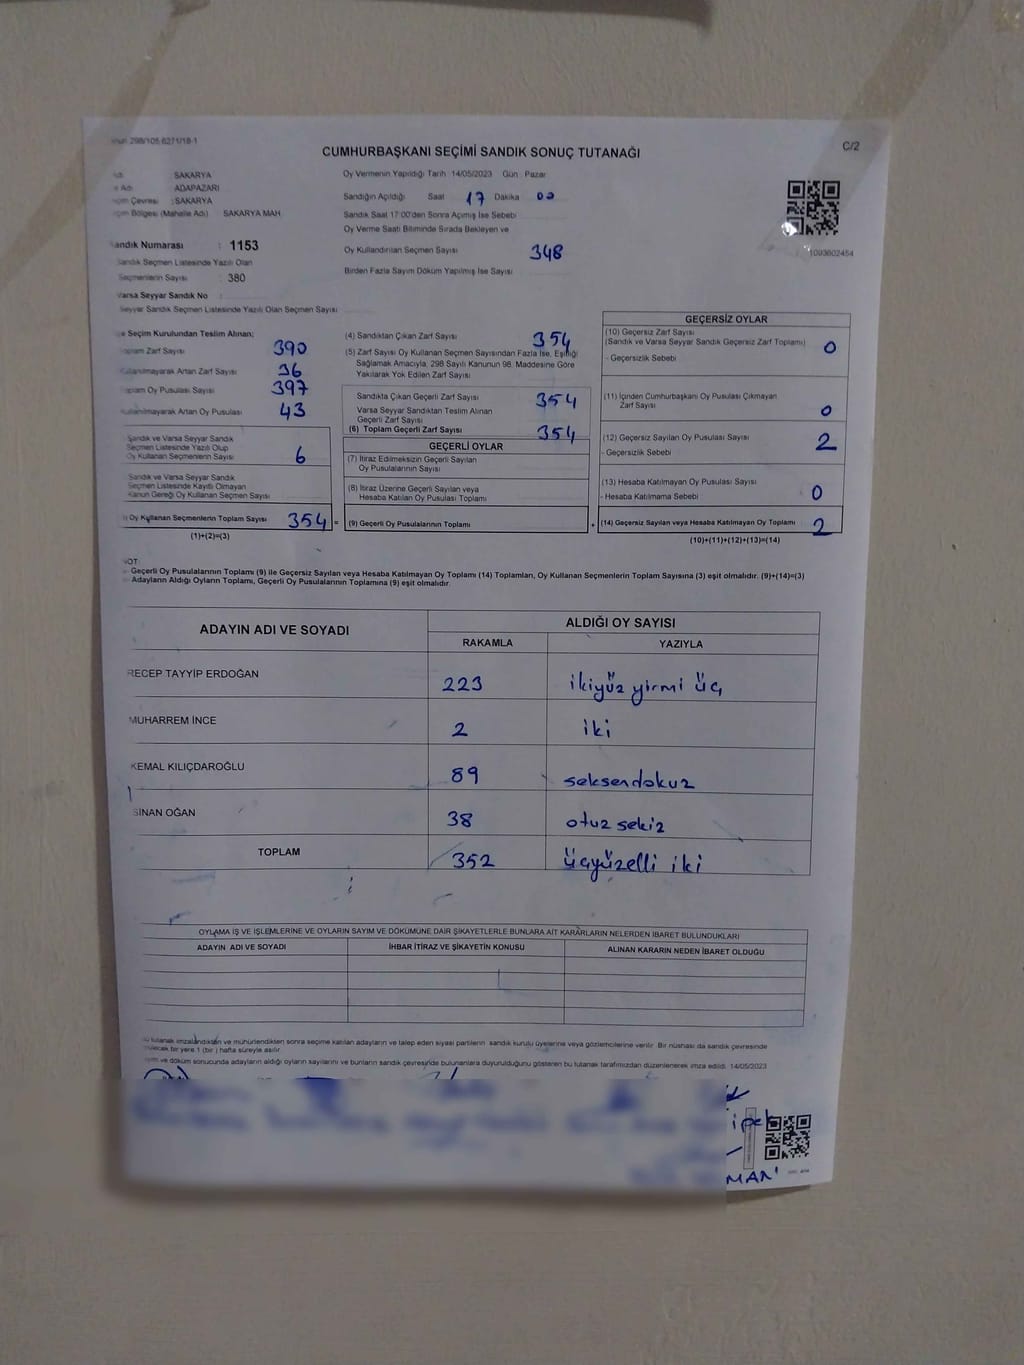 298/105.6271/18-1
C/2
CUMHURBAŞKANI SEÇİMİ SANDIK SONUÇ TUTANAĞI
SAKARYA
Adı ADAPAZARI
Çevresi : SAKARYA
Bölgesi (Mahalle Adı) SAKARYA MAH
Sandık Numarası : 1153
Sandık Seçmen Listesinde Yazılı Olan
Seçmenlerin Sayısı : 380
Varsa Seyyar Sandık No :
Seyyar Sandık Seçmen Listesinde Yazılı Olan Seçmen Sayısı
Oy Vermenin Yapıldığı Tarih 14/05/2023 Gün Pazar
Sandığın Açıldığı Saat 17 Dakika 00
Sandık Saat 17:00'den Sonra Açımış İse Sebebi
Oy Verme Saati Bitiminde Sırada Bekleyen ve
Oy Kullandırılan Seçmen Sayısı 348
Birden Fazla Sayım Döküm Yapılmış İse Sayısı
1093602454
Seçim Kurulundan Teslim Alınan;
Toplam Zarf Sayısı 390
Kullanılmayarak Artan Zarf Sayısı 36
Toplam Oy Pusulası Sayısı 397
Kullanılmayarak Artan Oy Pusulası 43
Sandık ve Varsa Seyyar Sandık
Seçmen Listesinde Yazılı Olup
Oy Kullanan Seçmenlerin Sayısı 6
Sandık ve Varsa Seyyar Sandık
Seçmen Listesinde Kayıtlı Olmayan
Kanun Gereği Oy Kullanan Seçmen Sayısı
Oy Kullanan Seçmenlerin Toplam Sayısı 354 =
(1)+(2)=(3)
(4) Sandıktan Çıkan Zarf Sayısı 354
(5) Zarf Sayısı Oy Kullanan Seçmen Sayısından Fazla İse, Eşitliği
Sağlamak Amacıyla, 298 Sayılı Kanunun 98. Maddesine Göre
Yakılarak Yok Edilen Zarf Sayısı
Sandıkta Çıkan Geçerli Zarf Sayısı 354
Varsa Seyyar Sandıktan Teslim Alınan
Geçerli Zarf Sayısı
(6) Toplam Geçerli Zarf Sayısı 354
GEÇERLİ OYLAR
(7) İtiraz Edilmeksizin Geçerli Sayılan
Oy Pusulalarının Sayısı
(8) İtiraz Üzerine Geçerli Sayılan veya
Hesaba Katılan Oy Pusulası Toplamı
(9) Geçerli Oy Pusulalarının Toplamı +
GEÇERSİZ OYLAR
(10) Geçersiz Zarf Sayısı
(Sandık ve Varsa Seyyar Sandık Geçersiz Zarf Toplamı) 0
- Geçersizlik Sebebi
(11) İçinden Cumhurbaşkanı Oy Pusulası Çıkmayan
Zarf Sayısı 0
(12) Geçersiz Sayılan Oy Pusulası Sayısı 2
- Geçersizlik Sebebi
(13) Hesaba Katılmayan Oy Pusulası Sayısı
- Hesaba Katılmama Sebebi 0
(14) Geçersiz Sayılan veya Hesaba Katılmayan Oy Toplamı 2
(10)+(11)+(12)+(13)=(14)
NOT:
- Geçerli Oy Pusulalarının Toplamı (9) ile Geçersiz Sayılan veya Hesaba Katılmayan Oy Toplamı (14) Toplamları, Oy Kullanan Seçmenlerin Toplam Sayısına (3) eşit olmalıdır. (9)+(14)=(3)
- Adayların Aldığı Oyların Toplamı, Geçerli Oy Pusulalarının Toplamına (9) eşit olmalıdır.
ADAYIN ADI VE SOYADI ALDIĞI OY SAYISI
RAKAMLA YAZIYLA
RECEP TAYYİP ERDOĞAN 223 ikiyüz yirmi üç
MUHARREM İNCE 2 iki
KEMAL KILIÇDAROĞLU 89 seksendokuz
SİNAN OĞAN 38 otuz sekiz
TOPLAM 352 üçyüzelli iki
OYLAMA İŞ VE İŞLEMLERİNE VE OYLARIN SAYIM VE DÖKÜMÜNE DAİR ŞİKAYETLERLE BUNLARA AİT KARARLARIN NELERDEN İBARET BULUNDUKLARI
ADAYIN ADI VE SOYADI İHBAR İTİRAZ VE ŞİKAYETİN KONUSU ALINAN KARARIN NEDEN İBARET OLDUĞU
tutanak imzalandıktan ve mühürlendikten sonra seçime katılan adayların ve talep eden siyasi partilerin sandık kurulu üyelerine veya gözlemcilerine verilir. Bir nüshası da sandık çevresinde
bir yere 1 (bir) hafta süreyle asılır.
ve döküm sonucunda adayların aldığı oyların sayılarını ve bunların sandık çevresinde bulunanlara duyurulduğunu gösteren bu tutanak tarafımızdan düzenlenerek imza edildi. 14/05/2023
ipek
MAN